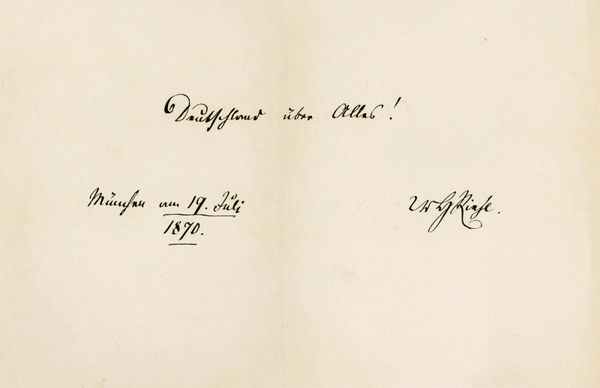 Deutschland über Alles!
München am 19. Juli
1870.
WHRiehl.